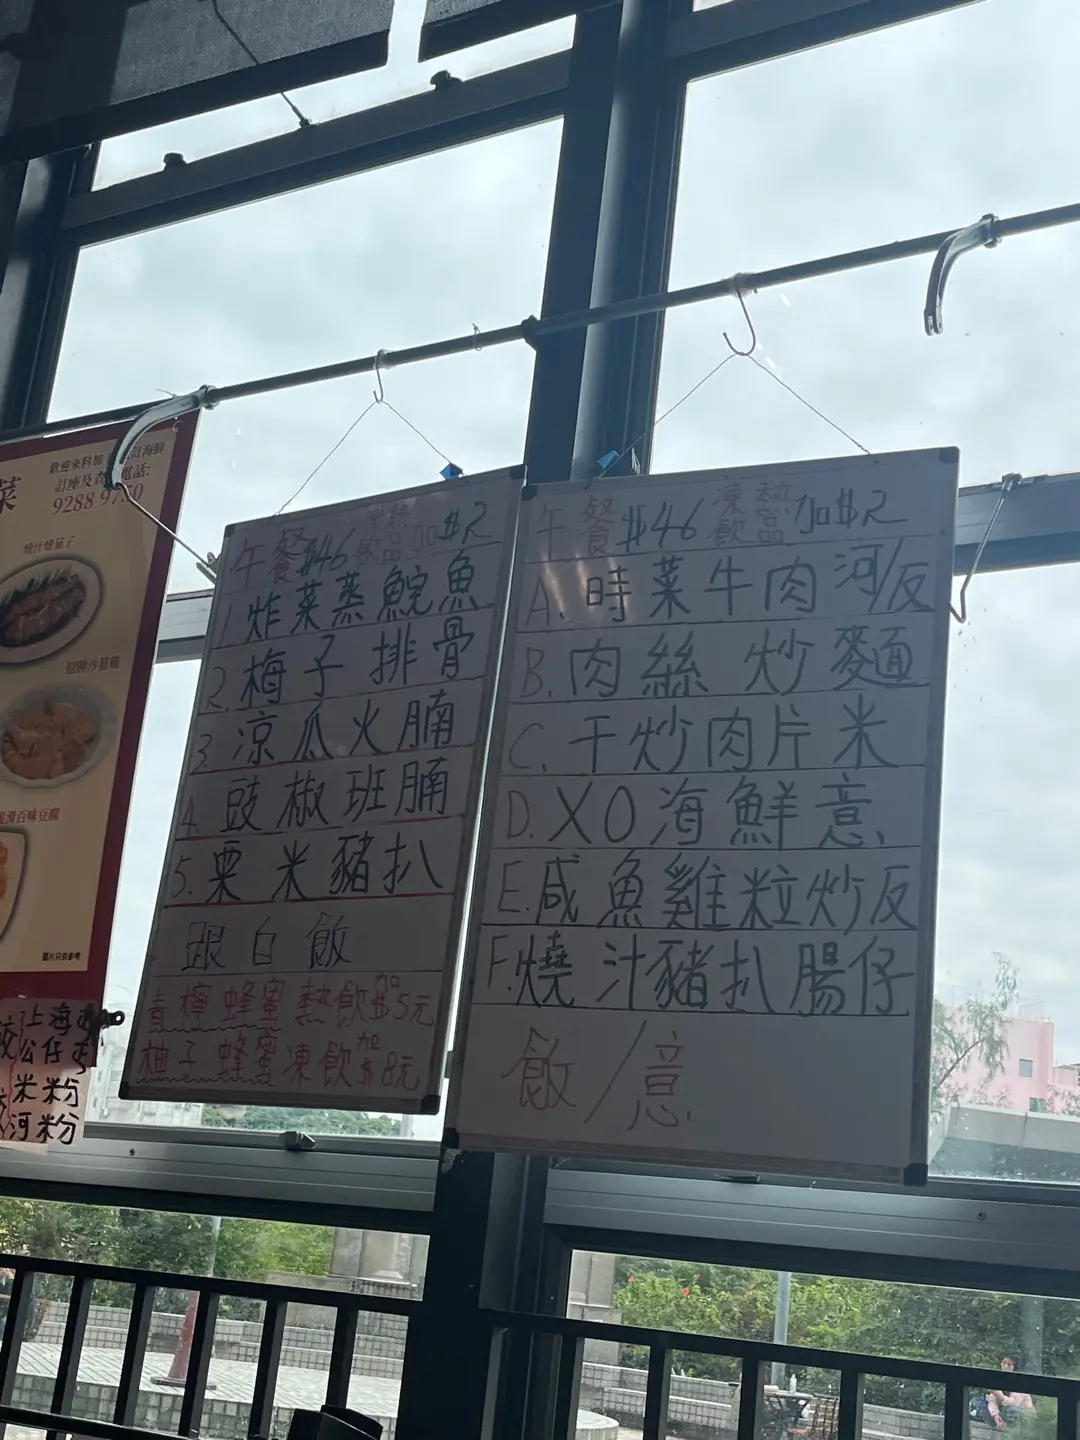 菜
歡迎來料加
海鮮
訂座及
電話:
燒汁燴茄子
招牌沙薑雞
百味豆腐
圖片只供參考
上海
公仔
米粉
河粉
午餐$46 凍熱飲品加$2
1. 炸菜蒸鯇魚
2. 梅子排骨
3. 涼瓜火腩
4. 豉椒班腩
5. 粟米豬扒
跟白飯
青檸蜂蜜熱飲加$5元
柚子蜂蜜凍飲加$8元
午餐$46 凍熱飲品加$2
A. 時菜牛肉河/反
B. 肉絲炒麵
C. 干炒肉片米
D. XO海鮮意
E. 咸魚雞粒炒反
F. 燒汁豬扒腸仔
飯/意